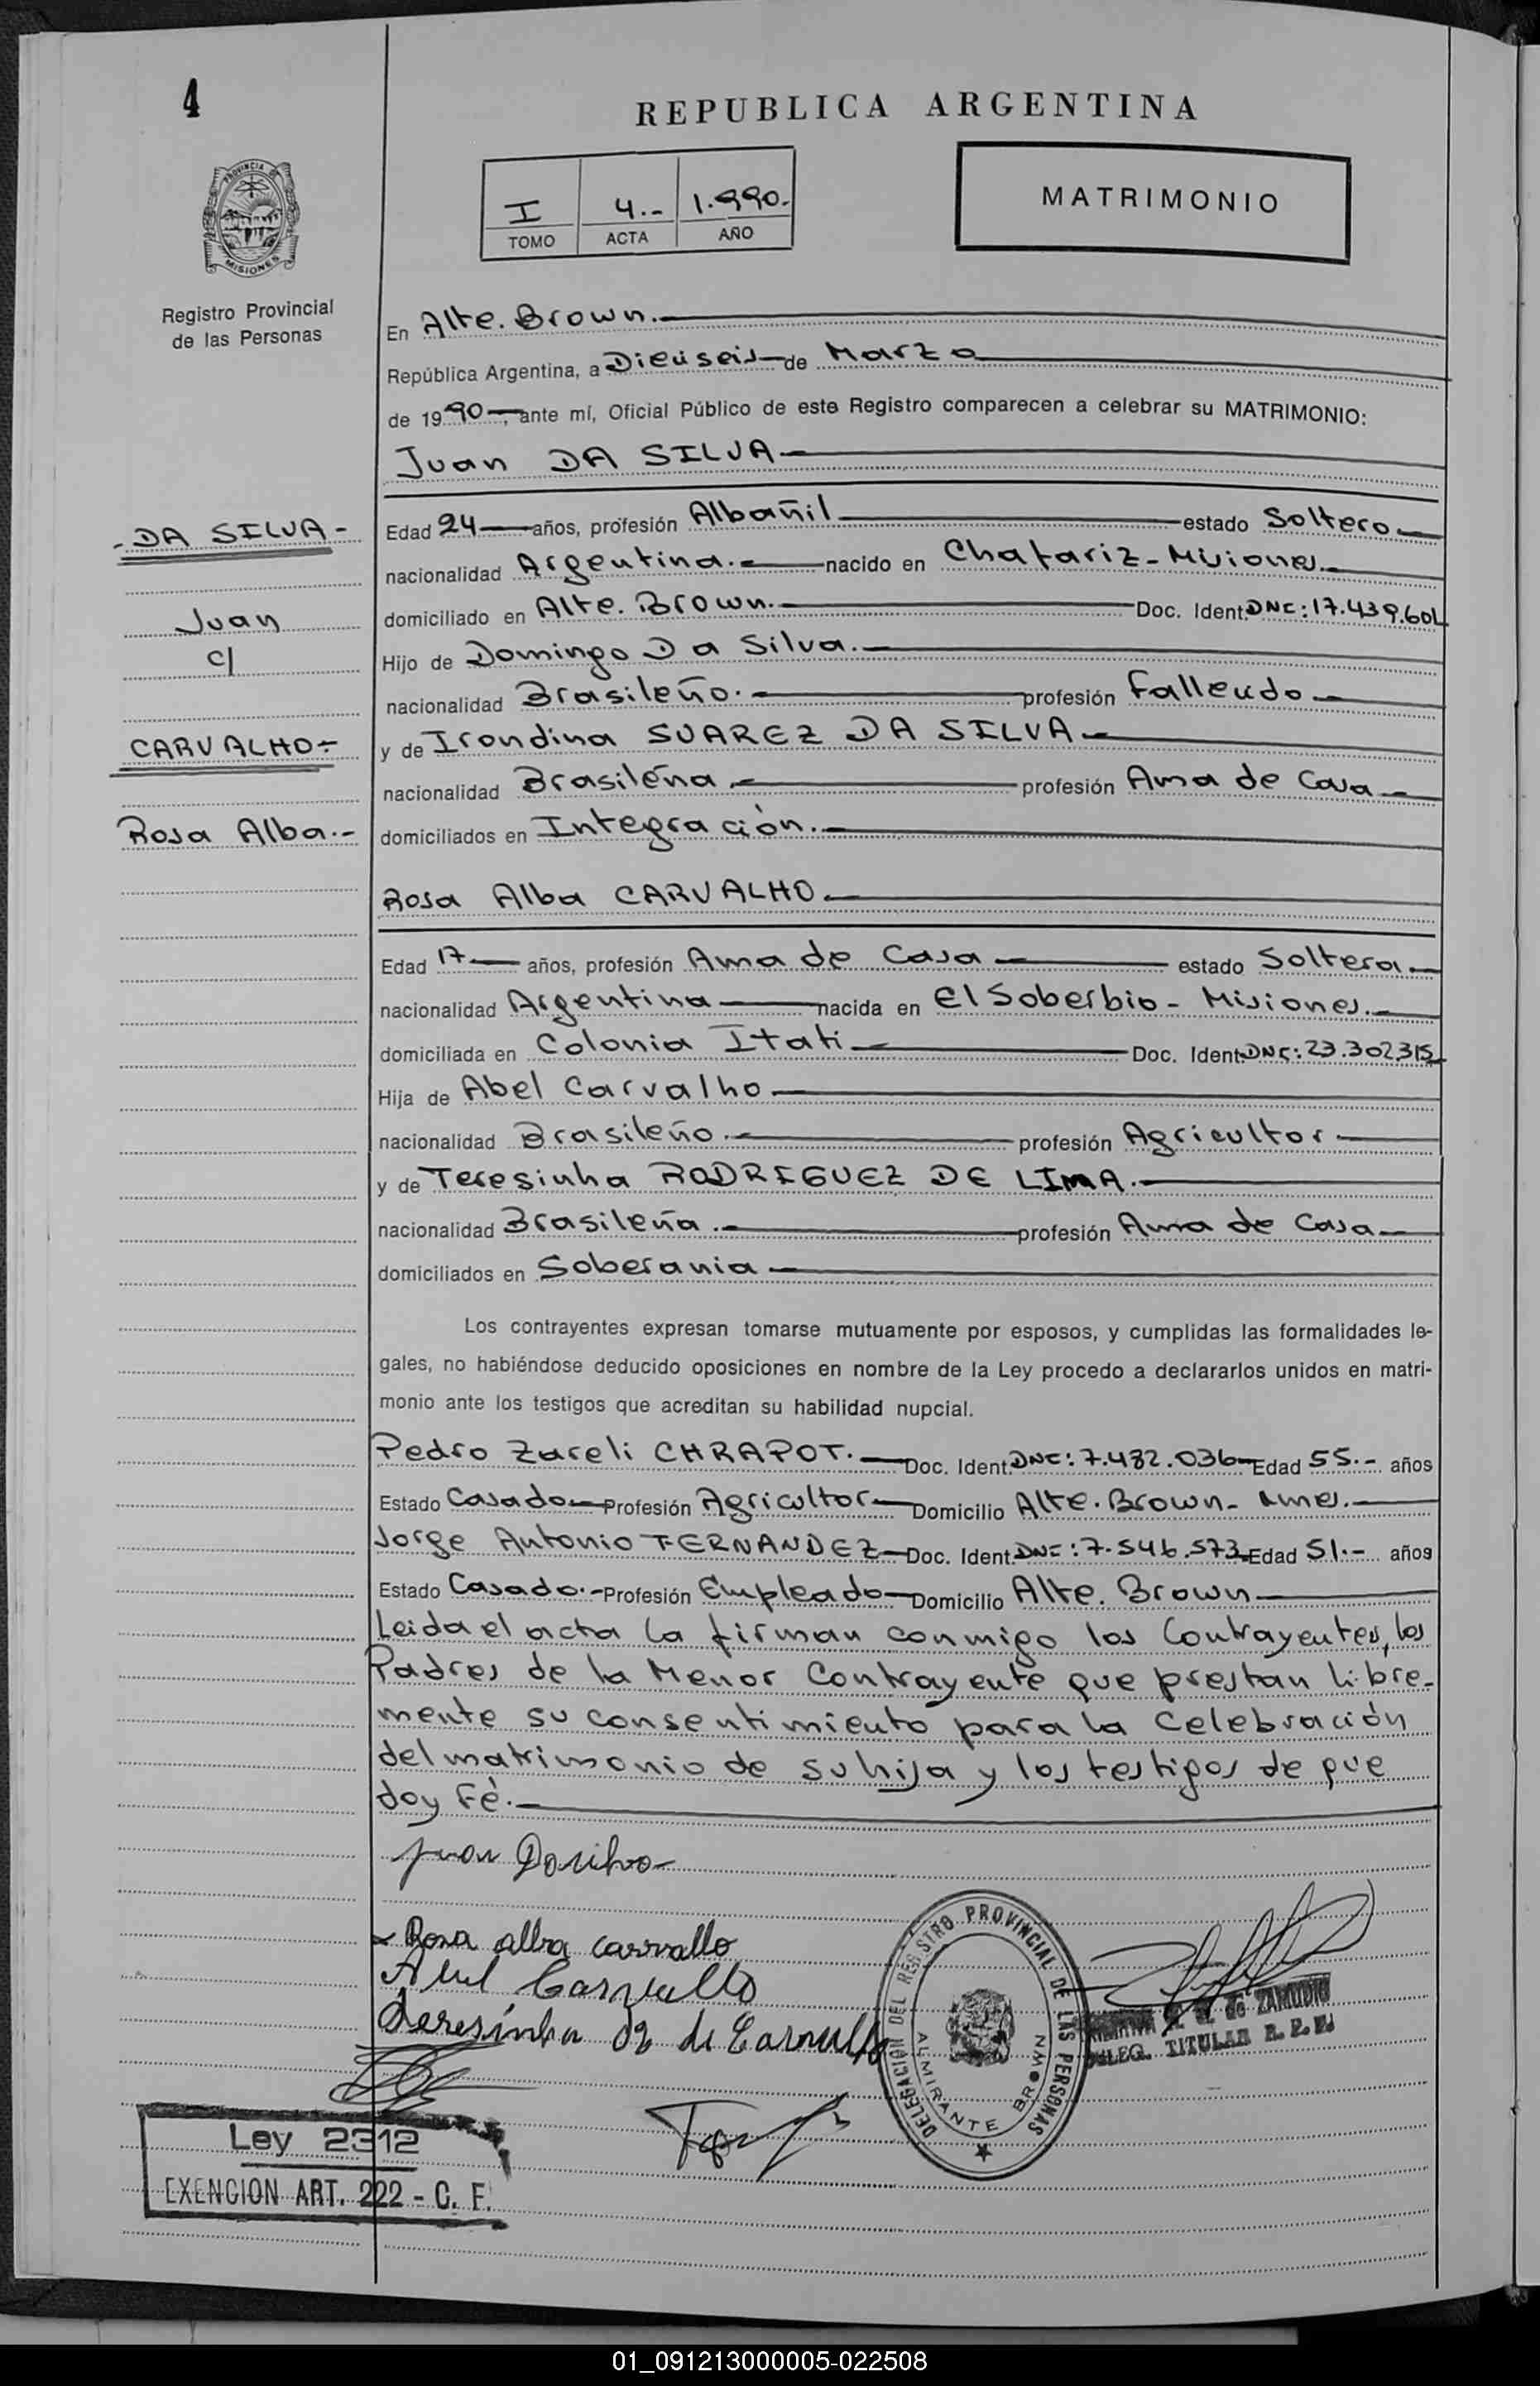 4
REPUBLICA ARGENTINA
PROVINCIA DE
MISIONES
I 4.- 1.990.-
TOMO ACTA AÑO
MATRIMONIO
Registro Provincial
de las Personas
En Alte. Brown.
República Argentina, a Dieciseis de Marzo
de 1990, ante mí, Oficial Público de este Registro comparecen a celebrar su MATRIMONIO:
Juan DA SILVA
- DA SILVA -
Juan
c/
CARVALHO-
Rosa Alba.-
Edad 24 años, profesión Albañil estado Soltero
nacionalidad Argentina.- nacido en Chafariz - Misiones.
domiciliado en Alte. Brown. Doc. Ident. DNI: 17.439.601
Hijo de Domingo Da Silva.
nacionalidad Brasileño. profesión Fallecido
y de Irondina SUAREZ DA SILVA
nacionalidad Brasileña. profesión Ama de Casa
domiciliados en Integración.
Rosa Alba CARVALHO.
Edad 17 años, profesión Ama de Casa estado Soltera
nacionalidad Argentina nacida en El Soberbio - Misiones.
domiciliada en Colonia Itati Doc. Ident. DNI: 23.302.315
Hija de Abel Carvalho
nacionalidad Brasileño. profesión Agricultor
y de Teresinha RODRIGUEZ DE LIMA.
nacionalidad Brasileña. profesión Ama de Casa
domiciliados en Soberania
Los contrayentes expresan tomarse mutuamente por esposos, y cumplidas las formalidades le-
gales, no habiéndose deducido oposiciones en nombre de la Ley procedo a declararlos unidos en matri-
monio ante los testigos que acreditan su habilidad nupcial.
Pedro Zareli CHRAPOT. Doc. Ident. DNI: 7.482.036 Edad 55.- años
Estado Casado Profesión Agricultor Domicilio Alte. Brown - Mnes.
Jorge Antonio FERNANDEZ Doc. Ident. DNI: 7.546.573 Edad 51.- años
Estado Casado.- Profesión Empleado Domicilio Alte. Brown
Leida el acta la firman conmigo los Contrayentes, los
Padres de la Menor Contrayente que prestan libre-
mente su consentimiento para la Celebración
del matrimonio de su hija y los testigos de que
doy Fé.
Juan Dasilva
Rosa alba carvallo
Abel Carvallo
Teresinha de Carvallo
DELEGACIÓN DEL REGISTRO PROVINCIAL DE LAS PERSONAS
ALMIRANTE BROWN
de ZAMUDIO
DELEG. TITULAR R. P. P.
Ley 2312
EXENCION ART. 222 - C. F.
01_091213000005-022508